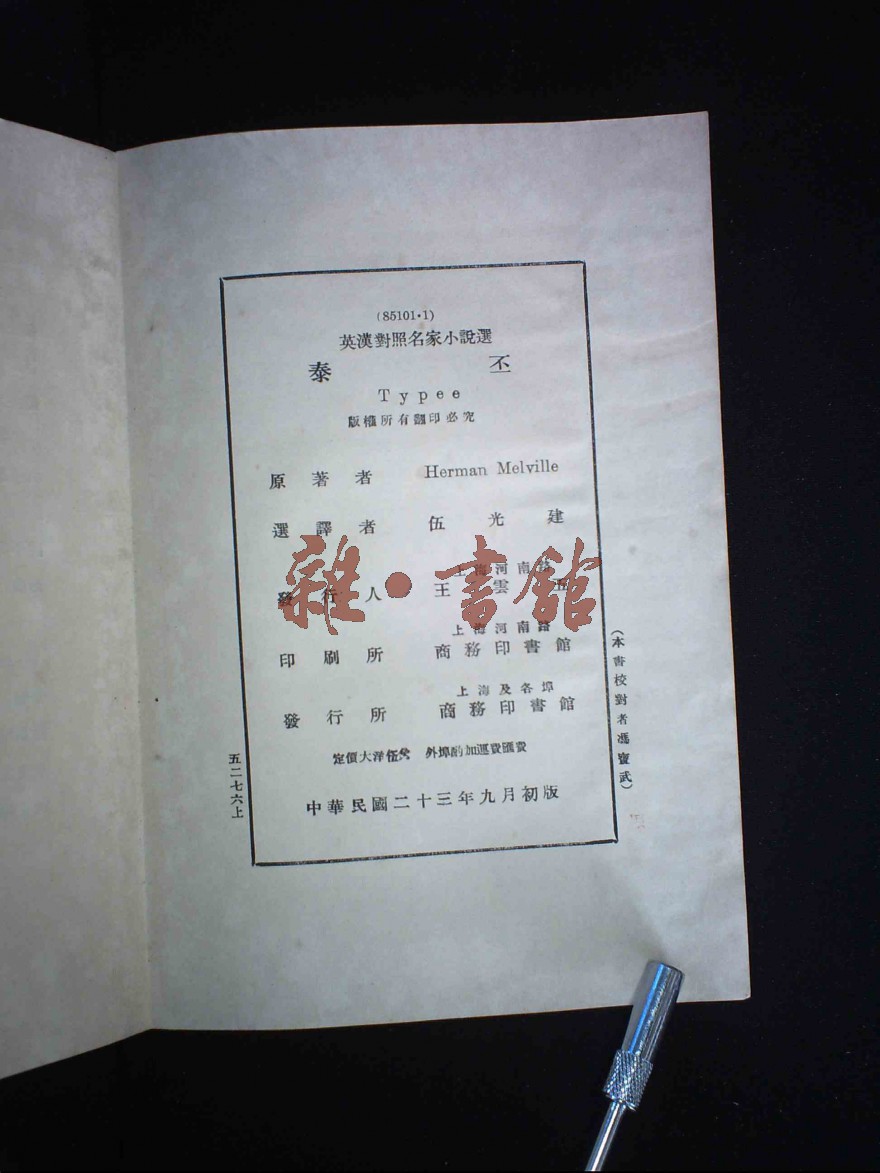 (85101·1)
英漢對照名家小說選
泰 丕
Typee
版權所有翻印必究
原著者 Herman Melville
選譯者 伍光建
上海河南路
發行人 王雲五
上海河南路
印刷所 商務印書館
上海及各埠
發行所 商務印書館
定價大洋伍角 外埠酌加運費匯費
中華民國二十三年九月初版
(本書校對者馮寳武)
五二七六上
雜·書館